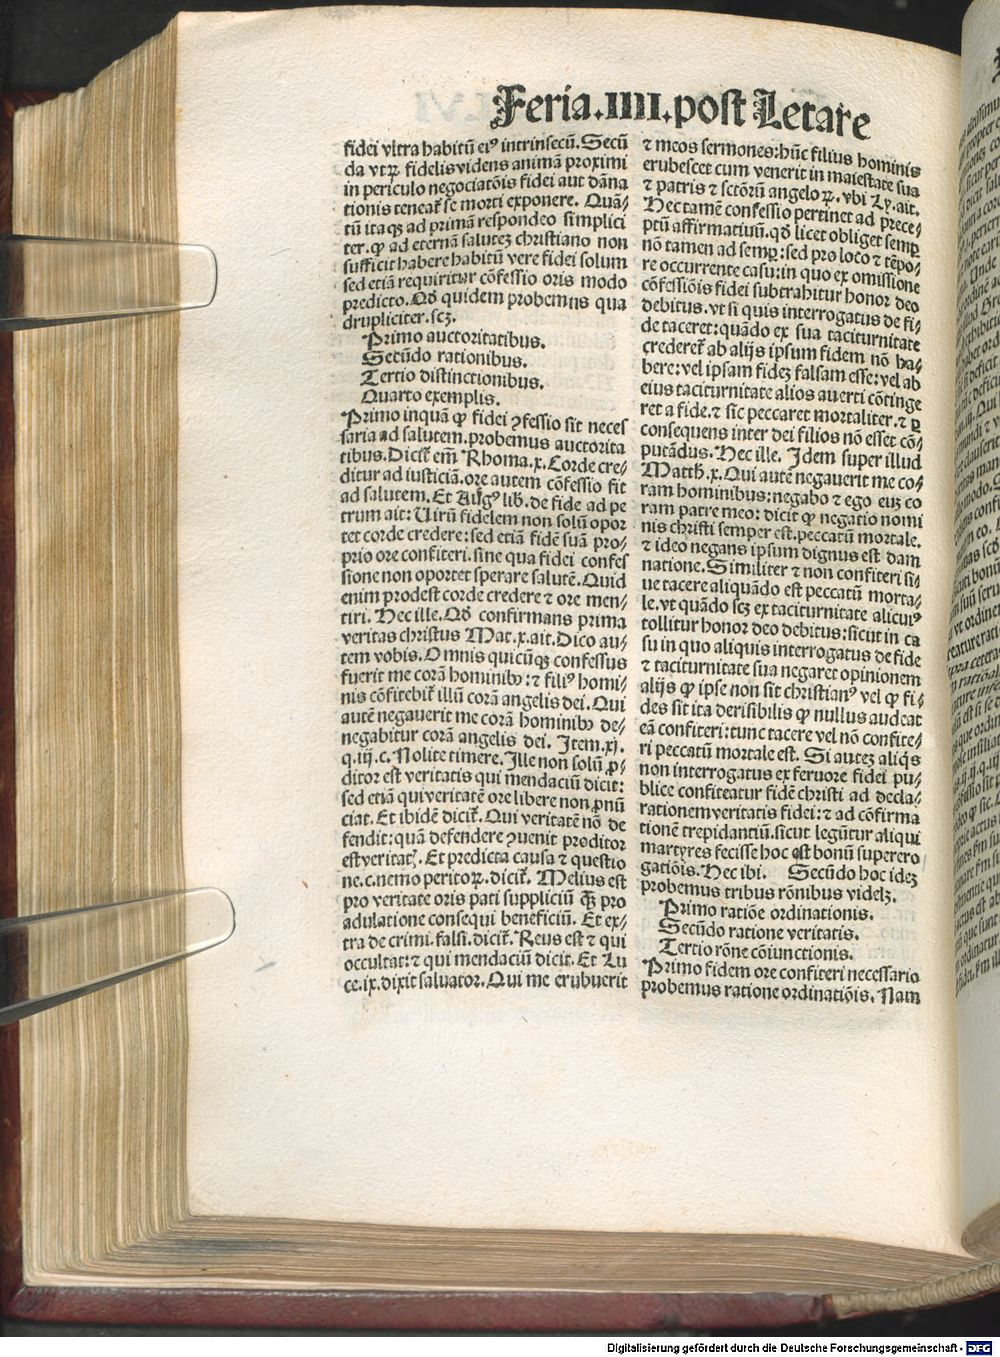 Feria.IIII.post Letare
fidei vltra habitũ eiꝰ intrinsecũ. Secũ
da vtꝝ fidelis videns animã proximi
in periculo negociatõis fidei aut dãna
tionis teneat̃ se morti exponere. Quã/
tũ itaqꝫ ad primã respondeo simplici
ter. ꝙ ad eternã salutez christiano non
sufficit habere habitũ vere fidei solum
sed etiã requiritur cõfessio oris modo
predicto. Qḋ quidem probemns qua
drupliciter. scꝫ.
Primo auctoritatibus.
Secũdo rationibus.
Tertio distinctionibus.
Quarto exemplis.
Primo inquã ꝙ fidei ꝯfessio sit neces
saria ad salutem. probemus auctorita
tibus. Dicit̃ em̃ Rhoma.x. Corde cre/
ditur ad iusticiã. ore autem cõfessio fit
ad salutem. Et Aũgꝰ lib. de fide ad pe
trum ait: Uirũ fidelem non solũ opor
tet corde credere: sed etiã fidẽ suã pro/
prio ore confiteri. sine qua fidei confes
sione non oportet sperare salutẽ. Quid
enim prodest corde credere ⁊ ore men/
tiri. Hec ille. Qḋ confirmans prima
veritas christus Mat.x. ait. Dico au/
tem vobis. Omnis quicũqꝫ confessus
fuerit me corã hominibꝰ: ⁊ filiꝰ homi/
nis cõfitebit̃ illũ corã angelis dei. Qui
autẽ negauerit me corã hominibꝰ de/
negabitur corã angelis dei. Item.xj.
q.iij.c. Nolite timere. Ille non solũ ꝓ/
ditor est veritatis qui mendaciũ dicit:
sed etiã qui veritatẽ ore libere non ꝓnũ
ciat. Et ibidẽ dicit̃. Qui veritatẽ nõ de
fendit: quã defendere ꝯuenit proditor
est veritatꝭ. Et predicta causa ⁊ questio
ne.c. nemo peritoꝝ. dicit̃. Melius est
pro veritate oris pati suppliciũ qꝫ pro
adulatione consequi beneficiũ. Et ex/
tra de crimi. falsi. dicit̃. Reus est ⁊ qui
occultat: ⁊ qui mendaciũ dicit. Et Lu
ce.ix. dixit saluator. Qui me erubuerit
⁊ meos sermones: hũc filius hominis
erubescet cum venerit in maiestate sua
⁊ patris ⁊ sctõrũ angeloꝝ. vbi Ly. ait.
Hec tamẽ confessio pertinet ad prece/
ptũ affirmatiuũ. qḋ licet obliget semꝑ
nõ tamen ad semꝑ: sed pro loco ⁊ tẽpo/
re occurrente casu: in quo ex omissione
cõfessiõis fidei subtrahitur honor deo
debitus. vt si quis interrogatus de fi/
de taceret: quãdo ex sua taciturnitate
crederet̃ ab alijs ipsum fidem nõ ha/
bere: vel ipsam fidez falsam esse: vel ab
eius taciturnitate alios auerti cõtinge
ret a fide. ⁊ sic peccaret mortaliter. ⁊ ꝑ
consequens inter dei filios nõ esset cõ/
putãdus. Hec ille. Idem super illud
Matth.x. Qui autẽ negauerit me co/
ram hominibus: negabo ⁊ ego euꝫ co
ram patre meo: dicit ꝙ negatio nomi
nis christi semper est peccatũ mortale.
⁊ ideo negans ipsum dignus est dam
natione. Similiter ⁊ non confiteri si/
ue tacere aliquãdo est peccatũ morta/
le. vt quãdo scꝫ ex taciturnitate alicuiꝰ
tollitur honor deo debitus: sicut in ca
su in quo aliquis interrogatus de fide
⁊ taciturnitate sua negaret opinionem
alijs ꝙ ipse non sit christianꝰ vel ꝙ fi/
des sit ita derisibilis ꝙ nullus audeat
eã confiteri: tunc tacere vel nõ confite/
ri peccatũ mortale est. Si autez aliq̃s
non interrogatus ex feruore fidei pu/
blice confiteatur fidẽ christi ad decla/
rationem veritatis fidei: ⁊ ad cõfirma
tionẽ trepidantiũ. sicut legũtur aliqui
martyres fecisse hoc est bonũ superero
gatiõis. Hec ibi. Secũdo hoc idez
probemus tribus rõnibus videlꝫ.
Primo ratiõe ordinationis.
Secũdo ratione veritatis.
Tertio rõne cõiunctionis.
Primo fidem ore confiteri necessario
probemus ratione ordinatiõis. Nam
Digitalisierung gefördert durch die Deutsche Forschungsgemeinschaft - DFG